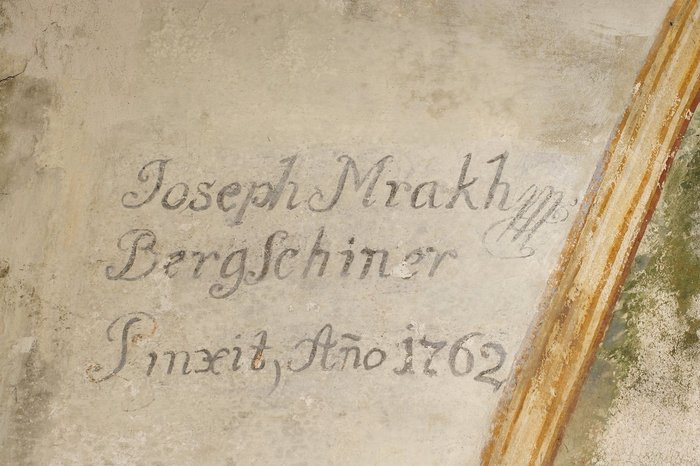 Joseph Mrakh
Bergſchiner
Pinxit, Año 1762